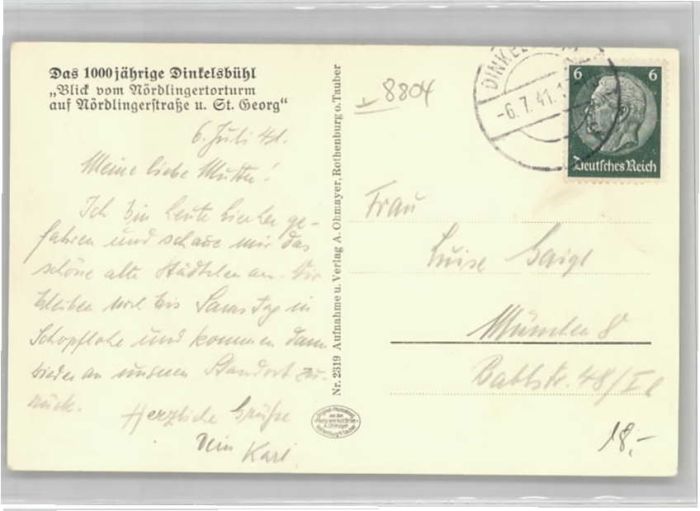 Das 1000jährige Dinkelsbühl
„Blick vom Nördlingertorturm
auf Nördlingerstraße u. St. Georg"
6. Juli 41.
Meine liebe Mutter!
Ich bin heute hierher ge-
fahren und schaue mir das
schöne alte Städtchen an. Wir
bleiben wohl bis Samstag in
Schopfloch und kommen dann
wieder an unseren Standort zu-
rück.
Herzliche Grüße
Dein Karl
Nr. 2319 Aufnahme u. Verlag A. Ohmayer, Rothenburg o. Tauber
8804
DINKEL
-6.7.41.
6 6
Deutsches Reich
Frau
Luise Gaigl
München 8
48/I
18.-